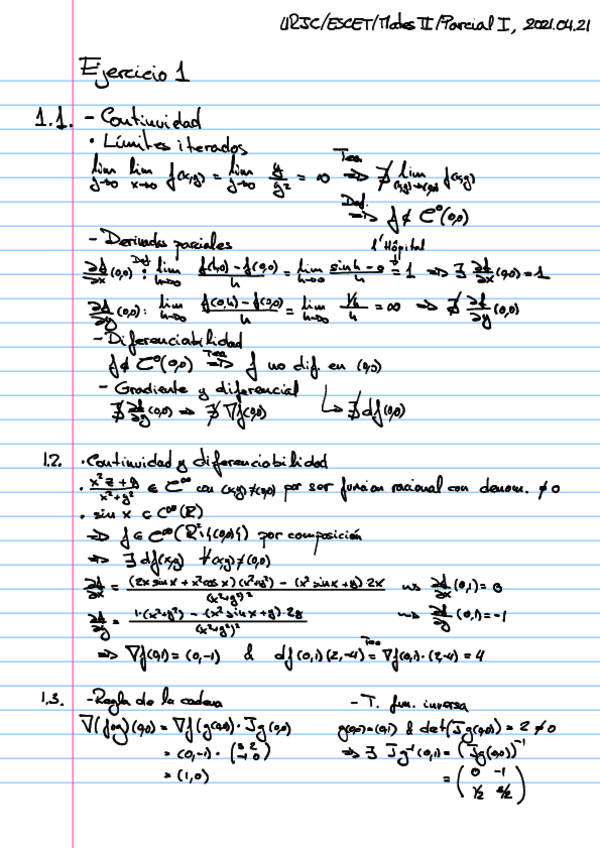 URJC/ESCET/Mates II/Parcial I, 2021.04.21
Ejercicio 1
1.1. - Continuidad
• Límites iterados
lim y→0 lim x→0 f(x,y) = lim y→0 y/y² = ∞ Tea ⇒ ∄ lim (x,y)→(0,0) f(x,y)
Def. ⇒ f ∉ C⁰(0,0)
- Derivadas parciales l'Hôpital
∂f/∂x (0,0) : Def lim h→0 f(h,0) - f(0,0)/h = lim h→0 sin h - 0/h = 1 ⇒ ∃ ∂f/∂x (0,0) = 1
∂f/∂y (0,0) : lim h→0 f(0,h) - f(0,0)/h = lim h→0 1/h/h = ∞ ⇒ ∄ ∂f/∂y (0,0)
- Diferenciabilidad
f ∉ C⁰(0,0) Tea ⇒ f no dif. en (0,0)
- Gradiente y diferencial
∄ ∂f/∂y (0,0) ⇒ ∄ ∇f(0,0) ↳ ∄ df(0,0)
1.2. • Continuidad y diferenciabilidad
• x² z + y / x² + y² ∈ C^∞ con (x,y) ≠ (0,0) por ser función racional con denom. ≠ 0
• sin x ∈ C^∞(ℝ)
⇒ f ∈ C^∞(ℝ² \ {(0,0)}) por composición
⇒ ∃ df(x,y) ∀(x,y) ≠ (0,0)
∂f/∂x = (2x sin x + x² cos x)(x² + y²) - (x² sin x + y) 2x / (x² + y²)² ⇝ ∂f/∂x (0,1) = 0
∂f/∂y = 1·(x² + y²) - (x² sin x + y)· 2y / (x² + y²)² ⇝ ∂f/∂y (0,1) = -1
⇒ ∇f(0,1) = (0,-1) & df(0,1)(2,-4) Tea = ∇f(0,1)·(2,-4) = 4
1.3. - Regla de la cadena - T. fun. inversa
∇(f∘g)(0,0) = ∇f(g(0,0))· Jg(0,0) g(0,0) = (0,1) & det(Jg(0,0)) = 2 ≠ 0
= (0,-1) · (5 2 / -1 0) ⇒ ∃ Jg⁻¹(0,1) = (Jg(0,0))⁻¹
= (1,0) = (0 -1 / 1/2 5/2)